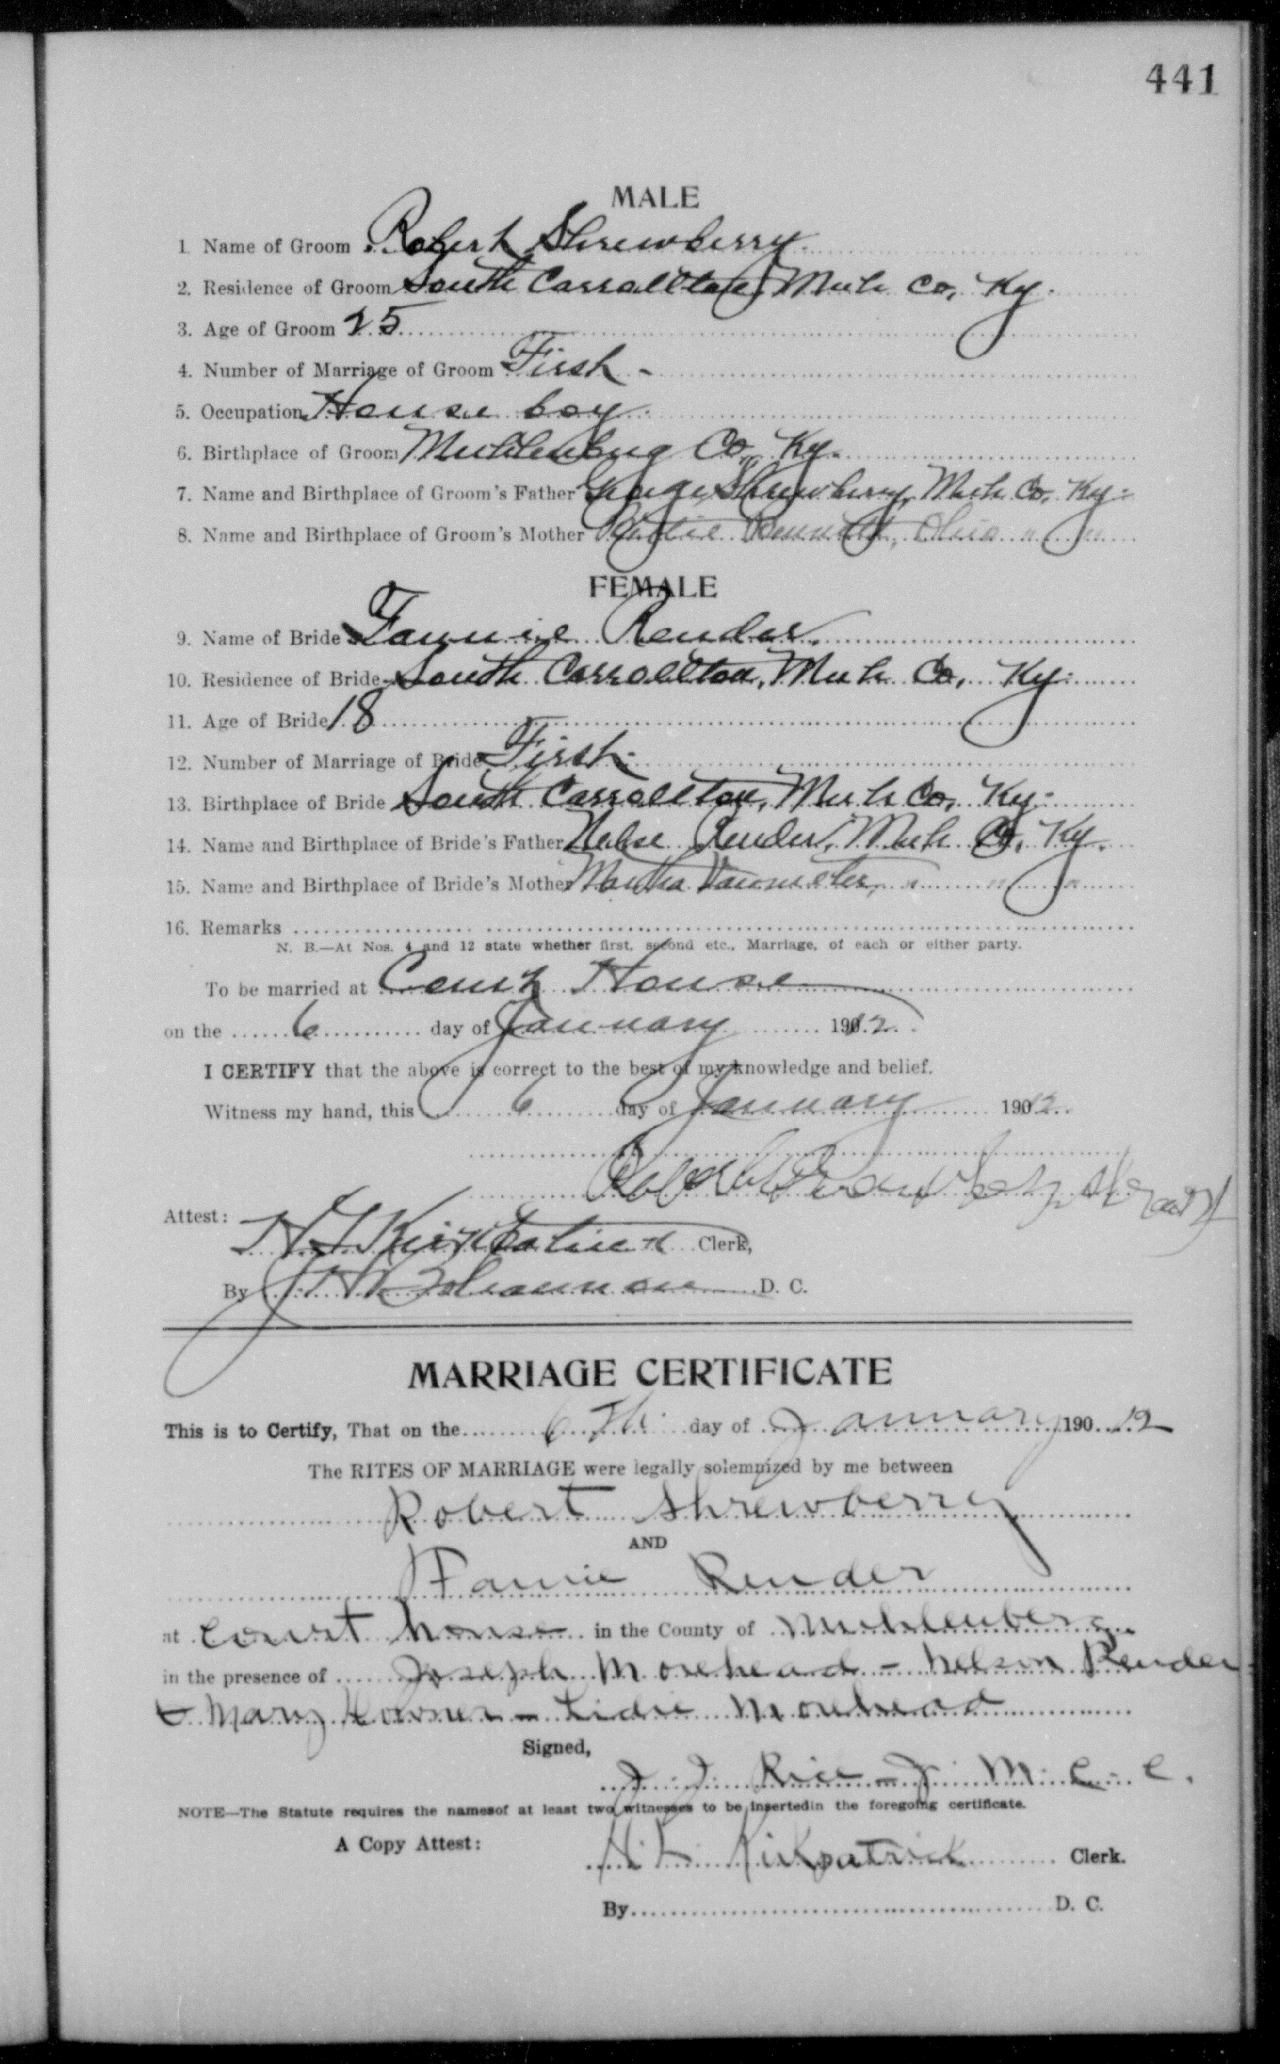 441
MALE
1. Name of Groom Robert Shrewberry.
2. Residence of Groom South Carrollton, Muh Co, Ky.
3. Age of Groom 25
4. Number of Marriage of Groom First.
5. Occupation House boy.
6. Birthplace of Groom Muhlenburg Co, Ky.
7. Name and Birthplace of Groom's Father George Shrewberry, Muh Co, Ky.
8. Name and Birthplace of Groom's Mother Bennett, Ohio " "
FEMALE
9. Name of Bride Fannie Render.
10. Residence of Bride South Carrollton, Muh Co, Ky.
11. Age of Bride 18
12. Number of Marriage of Bride First.
13. Birthplace of Bride South Carrollton, Muh Co, Ky.
14. Name and Birthplace of Bride's Father Nelse Render, Muh Co, Ky.
15. Name and Birthplace of Bride's Mother Martha Vanmeter, " " "
16. Remarks
N. B.—At Nos. 4 and 12 state whether first, second etc., Marriage, of each or either party.
To be married at Court House
on the 6 day of January 1912
I CERTIFY that the above is correct to the best of my knowledge and belief.
Witness my hand, this 6 day of January 190 12
Attest:
Clerk,
By D. C.
MARRIAGE CERTIFICATE
This is to Certify, That on the 6th day of January 190 12
The RITES OF MARRIAGE were legally solemnized by me between
Robert Shrewberry
AND
Fannie Render
at court house in the County of Muhlenberg
in the presence of Joseph Morehead - Nelson Render
& Mary - Lidie Morehead
Signed,
J. J. Rice - J. M. C. C.
NOTE—The Statute requires the namesof at least two witnesses to be insertedin the foregoing certificate.
A Copy Attest:
Kirkpatrick Clerk.
By D. C.